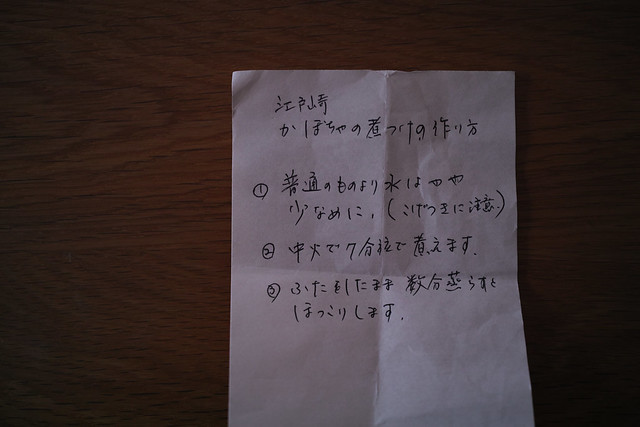 江戸崎
かぼちゃの煮つけの作り方
① 普通のものより水はやや
少なめに。(こげつきに注意)
② 中火で7分位で煮えます。
③ ふたをしたまま数分蒸らすと
ほっこりします。